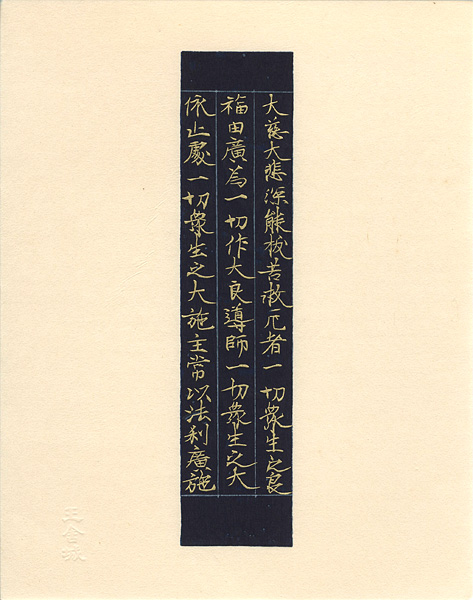 大慈大悲深能拔苦救厄者一切衆生之良
福田廣為一切作大良導師一切衆生之大
依止處一切衆生之大施主常以法利廣施
王舍城